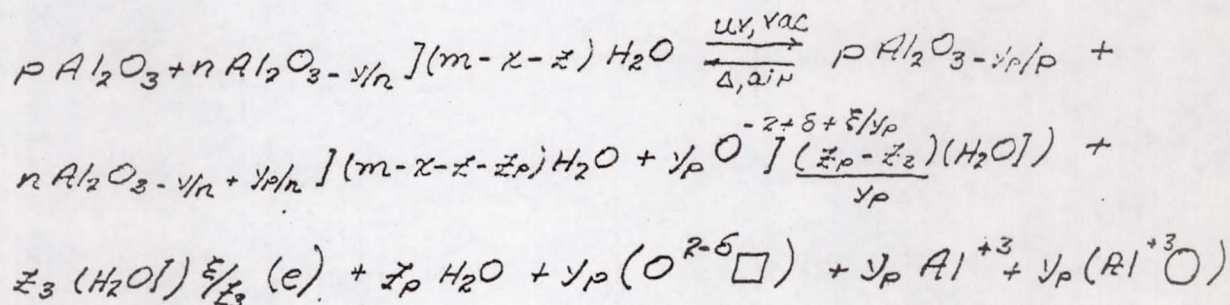 p Al₂O₃ + n Al₂O₃₋y/n ](m-x-z) H₂O ⇌ (uv, vac / Δ, air) p Al₂O₃₋yₚ/p +
n Al₂O₃₋y/n + yₚ/n ](m-x-z-zₚ) H₂O + yₚ O^(-2+δ+ξ/yₚ) ] (zₚ-z₂)/yₚ (H₂O]) +
z₃ (H₂O]) ξ/z₃ (e) + zₚ H₂O + yₚ (O^(2-δ) □) + yₚ Al⁺³ + yₚ (Al⁺³ ○)